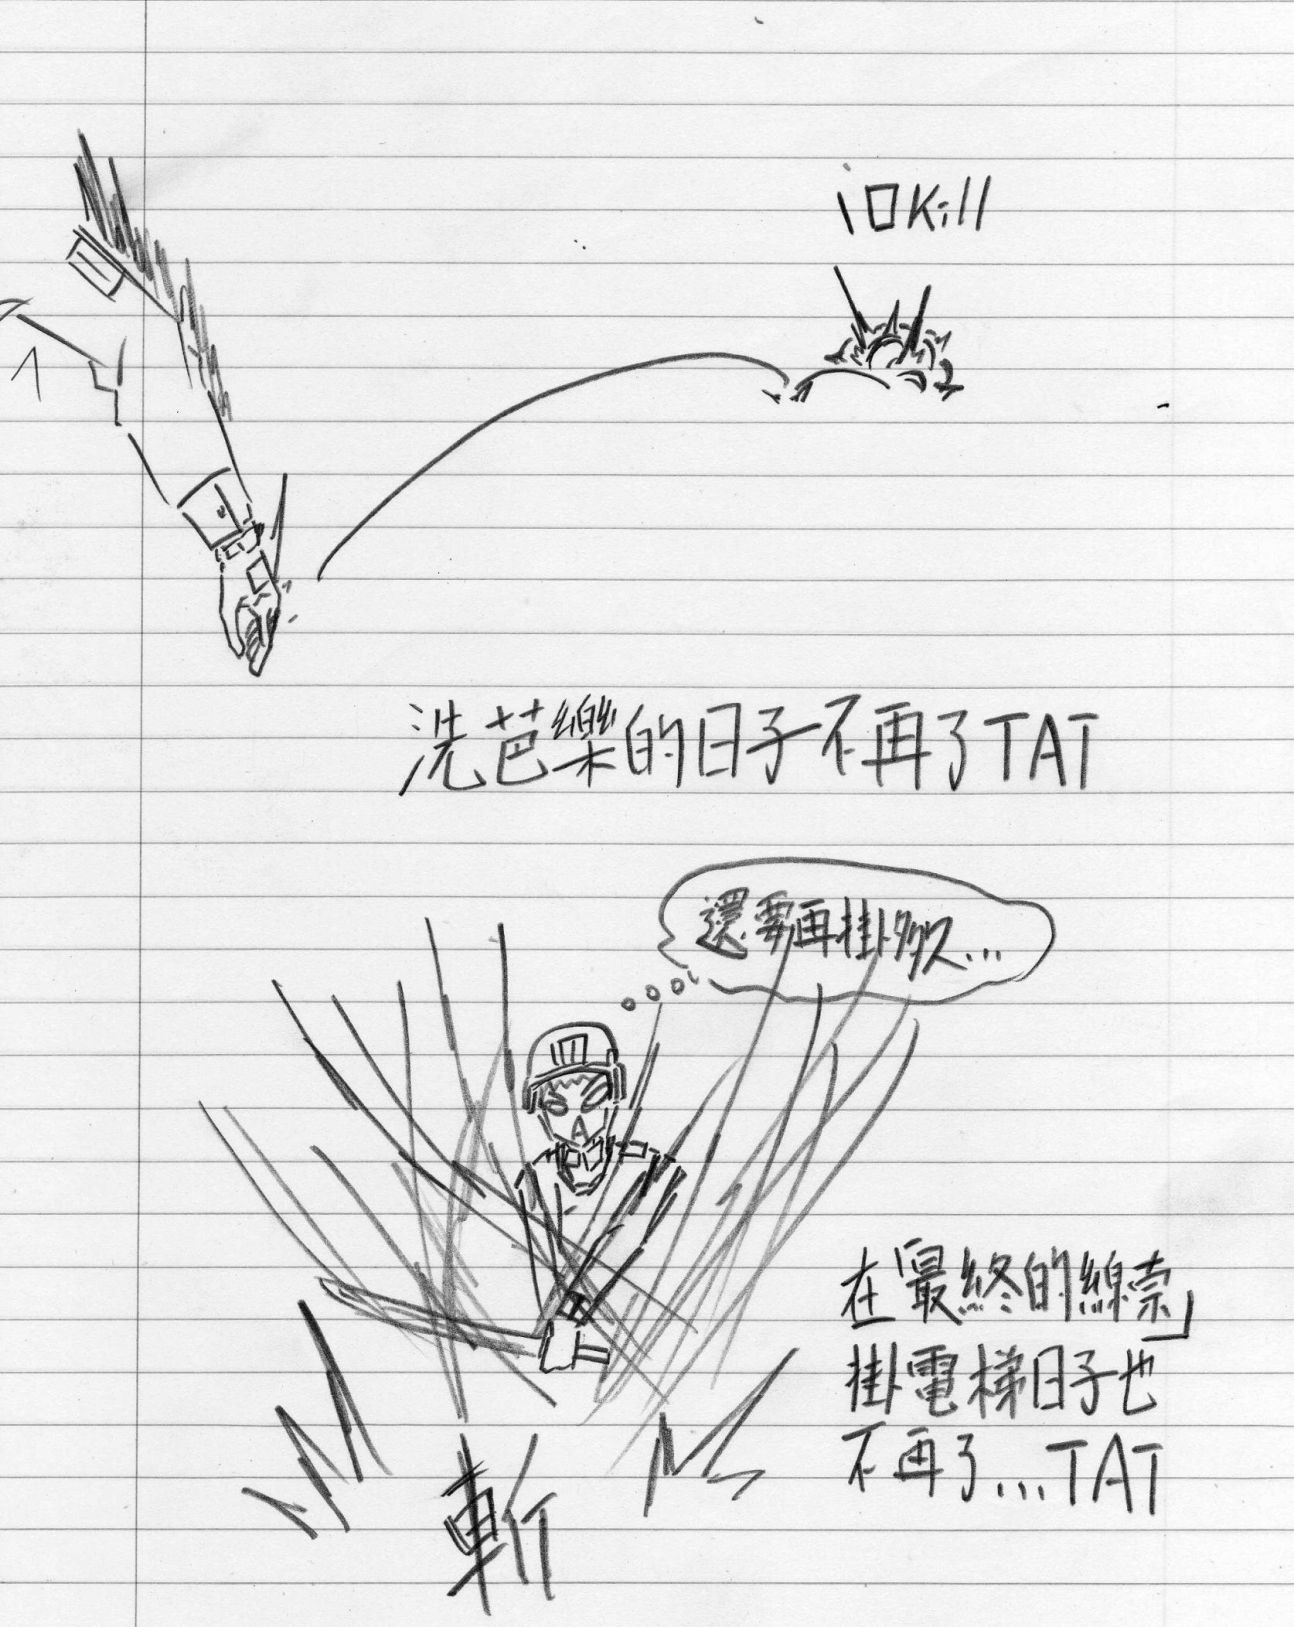 10Kill
洗芭樂的日子不再了TAT
還要再掛多久...
在「最終的線索」
掛電梯日子也
不再了...TAT
斬